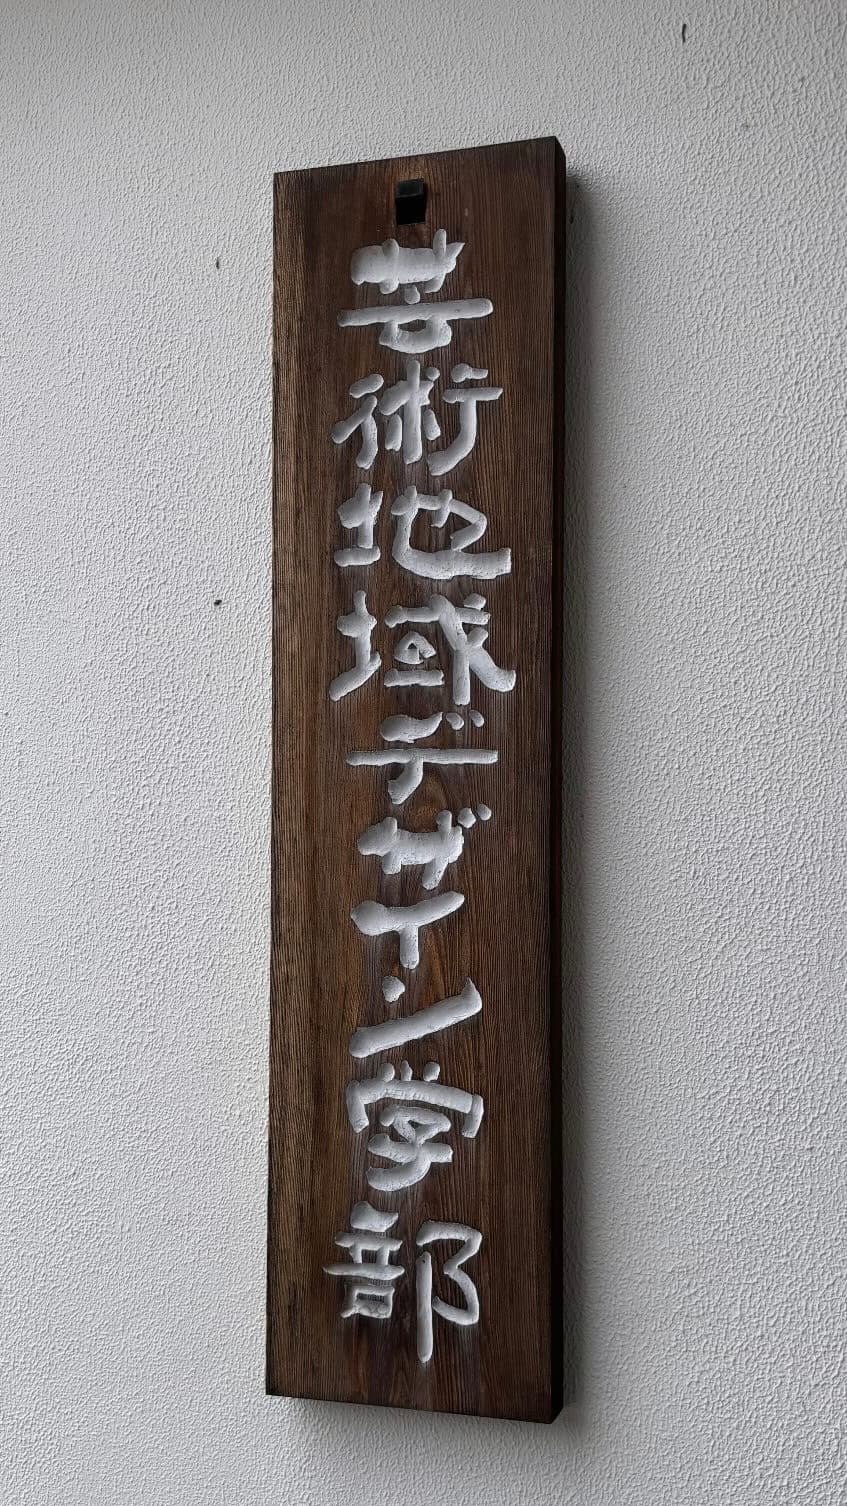 芸術地域デザイン学部